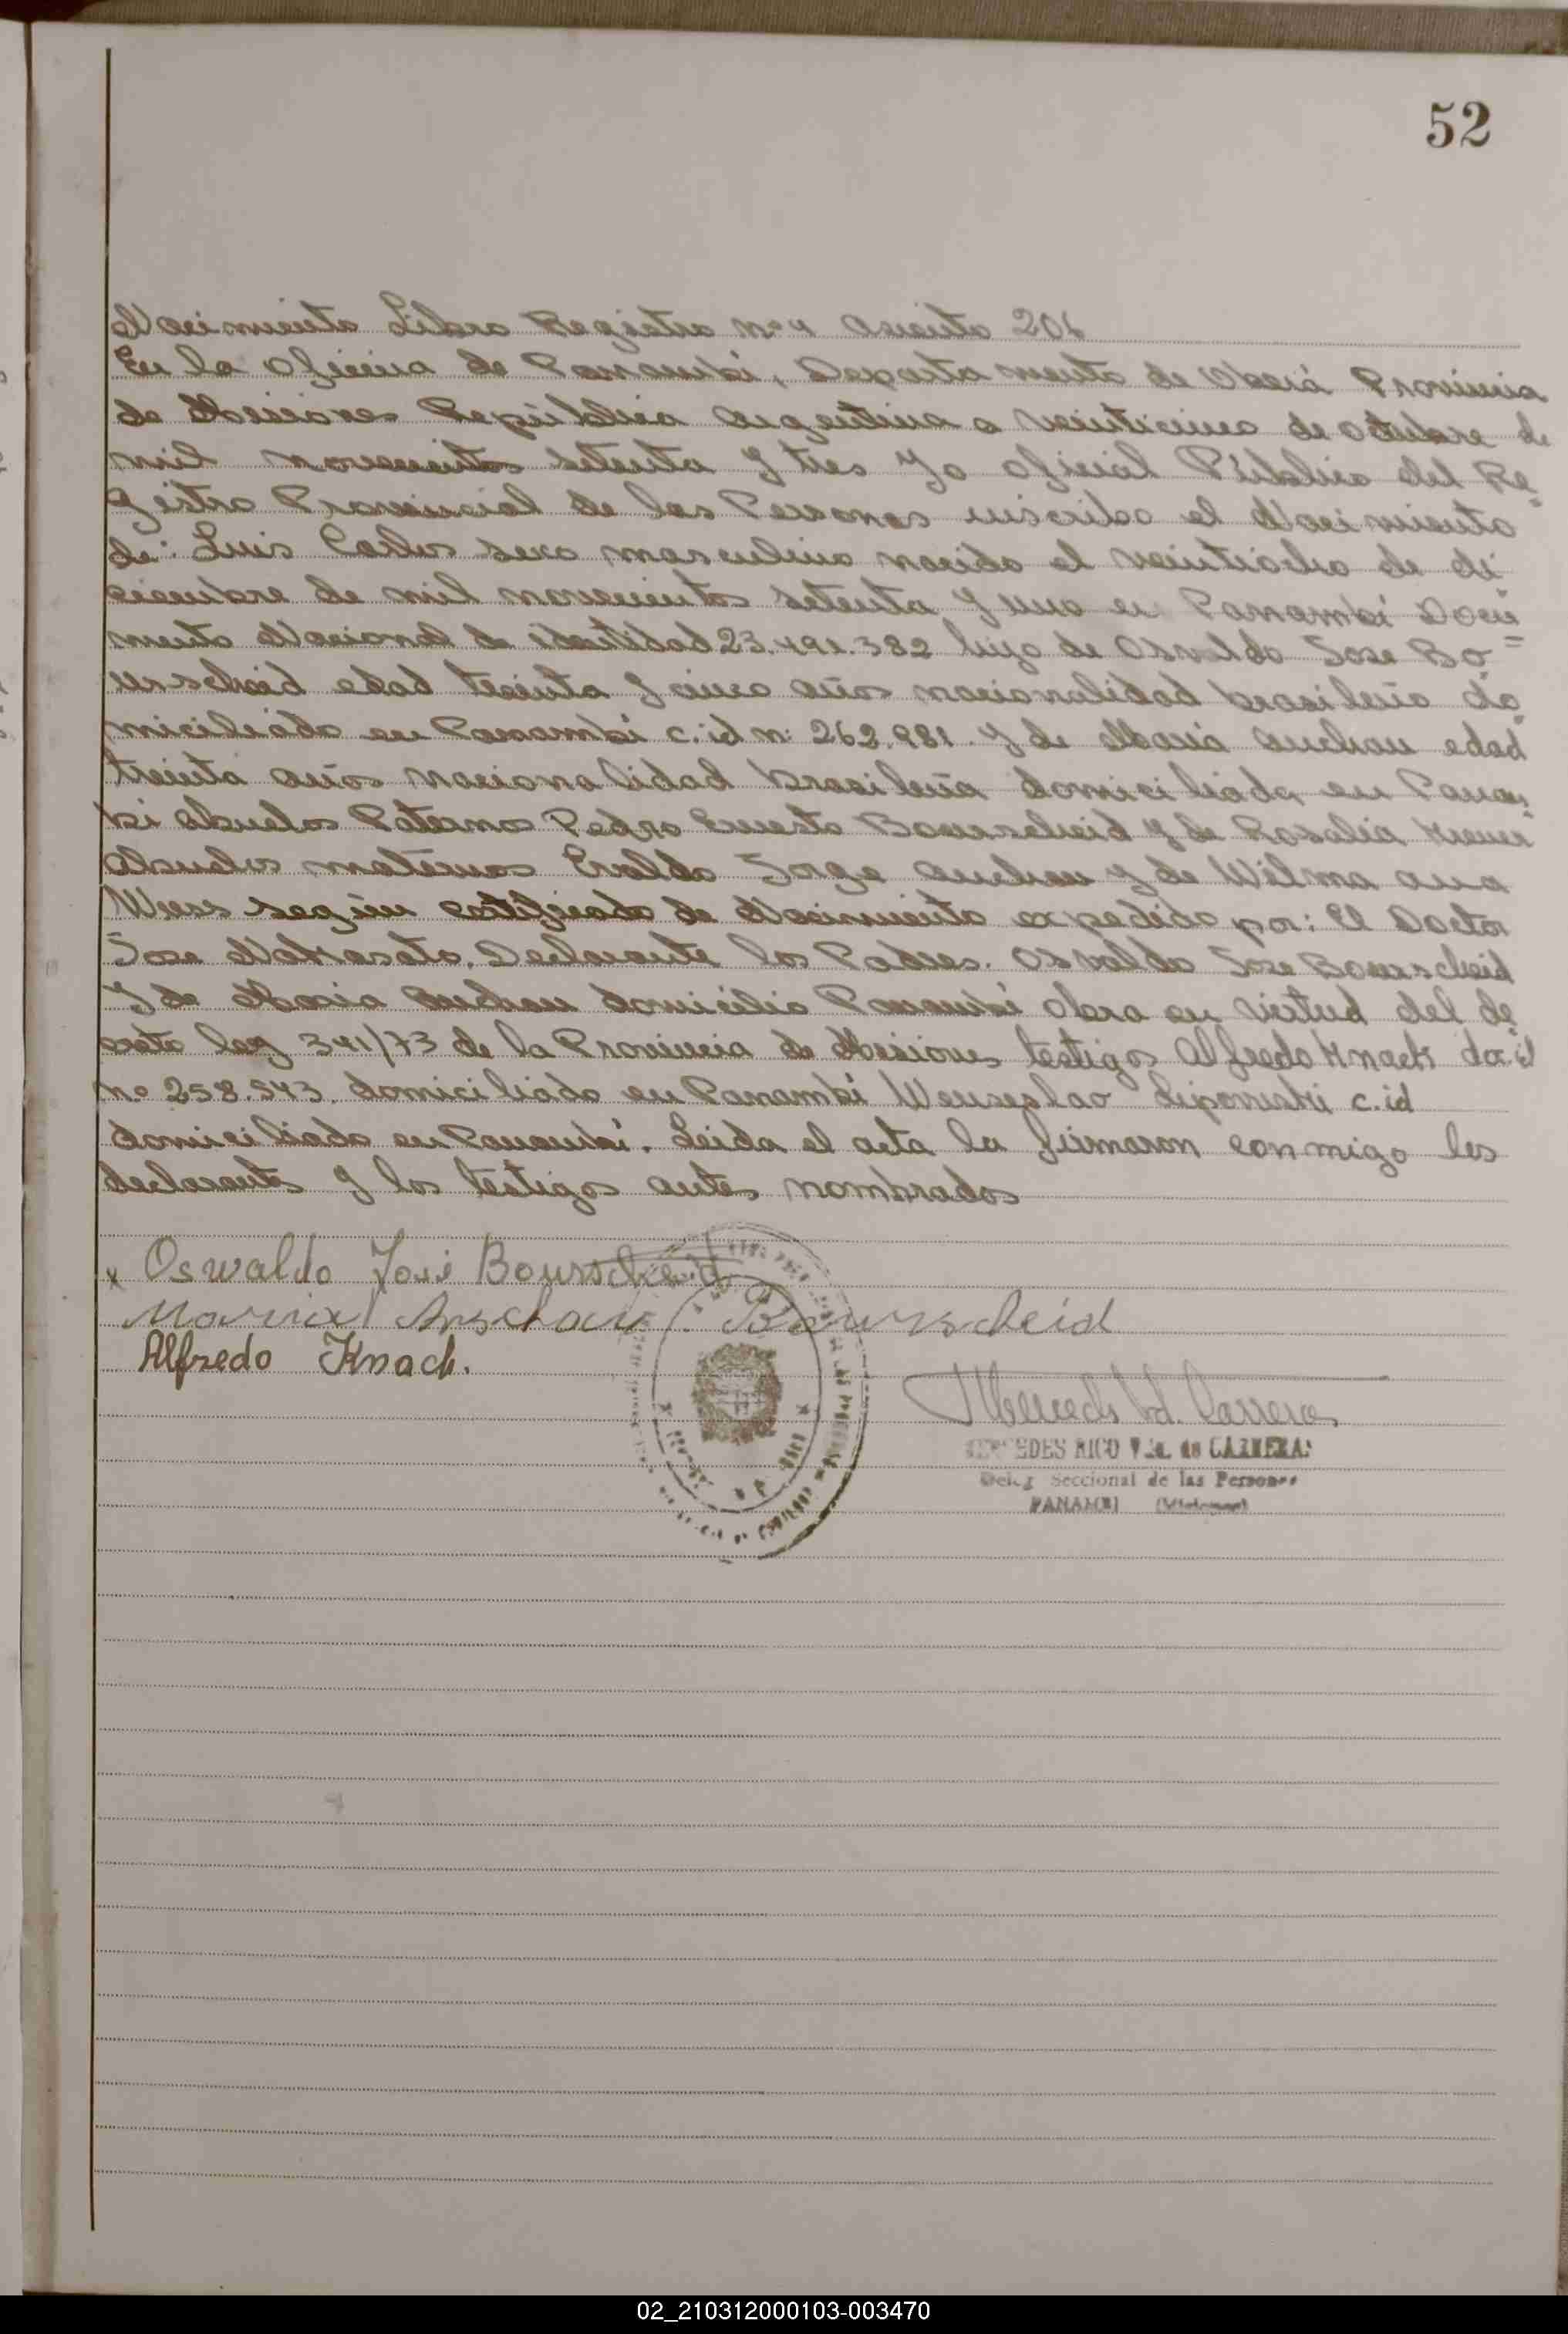 52
Nacimiento Libro Registro nº 4 Asiento 201
En la Oficina de Panambí, Departamento de Oberá Provincia
de Misiones República Argentina a veinticinco de octubre de
mil novecientos setenta y tres Yo Oficial Público del Re=
gistro Provincial de las Personas inscribo el Nacimiento
de: Luis Carlos sexo masculino nacido el veintiocho de di=
ciembre de mil novecientos setenta y uno en Panambí Docu=
mento Nacional de identidad 23.491.382 hijo de Osvaldo Jose Bo=
urscheid edad treinta y cinco años nacionalidad brasileño do=
miciliado en Panambí c.id n: 262.981. y de Maria Anchau edad
treinta años nacionalidad brasileña domiciliada en Panam=
bi Abuelos Paternos Pedro Ernesto Bourscheid y de Rosalia
Abuelos maternos Evaldo Jorge Anchau y de Wilma ana
Wess según certificado de Nacimiento expedido por: El Doctor
Jose Declarante los Padres. Osvaldo Jose Bourscheid
Y de Maria Anchau domicilio Panambí Obra en virtud del de=
creto ley 341/73 de la Provincia de Misiones testigos Alfredo Knach
nº 258.543. domiciliado en Panambí Wenseslao c.id
domiciliado en Panambí. Leida el acta la firmaron conmigo los
declarantes y los testigos antes nombrados
x Oswaldo José Bourscheid
Maria Anschau Bourscheid
Alfredo Knach.
Mercedes Vd. Carreras
MERCEDES RICO Vda. de CARRERAS
Deleg Seccional de las Personas
PANAMBI (Misiones)
02_210312000103-003470